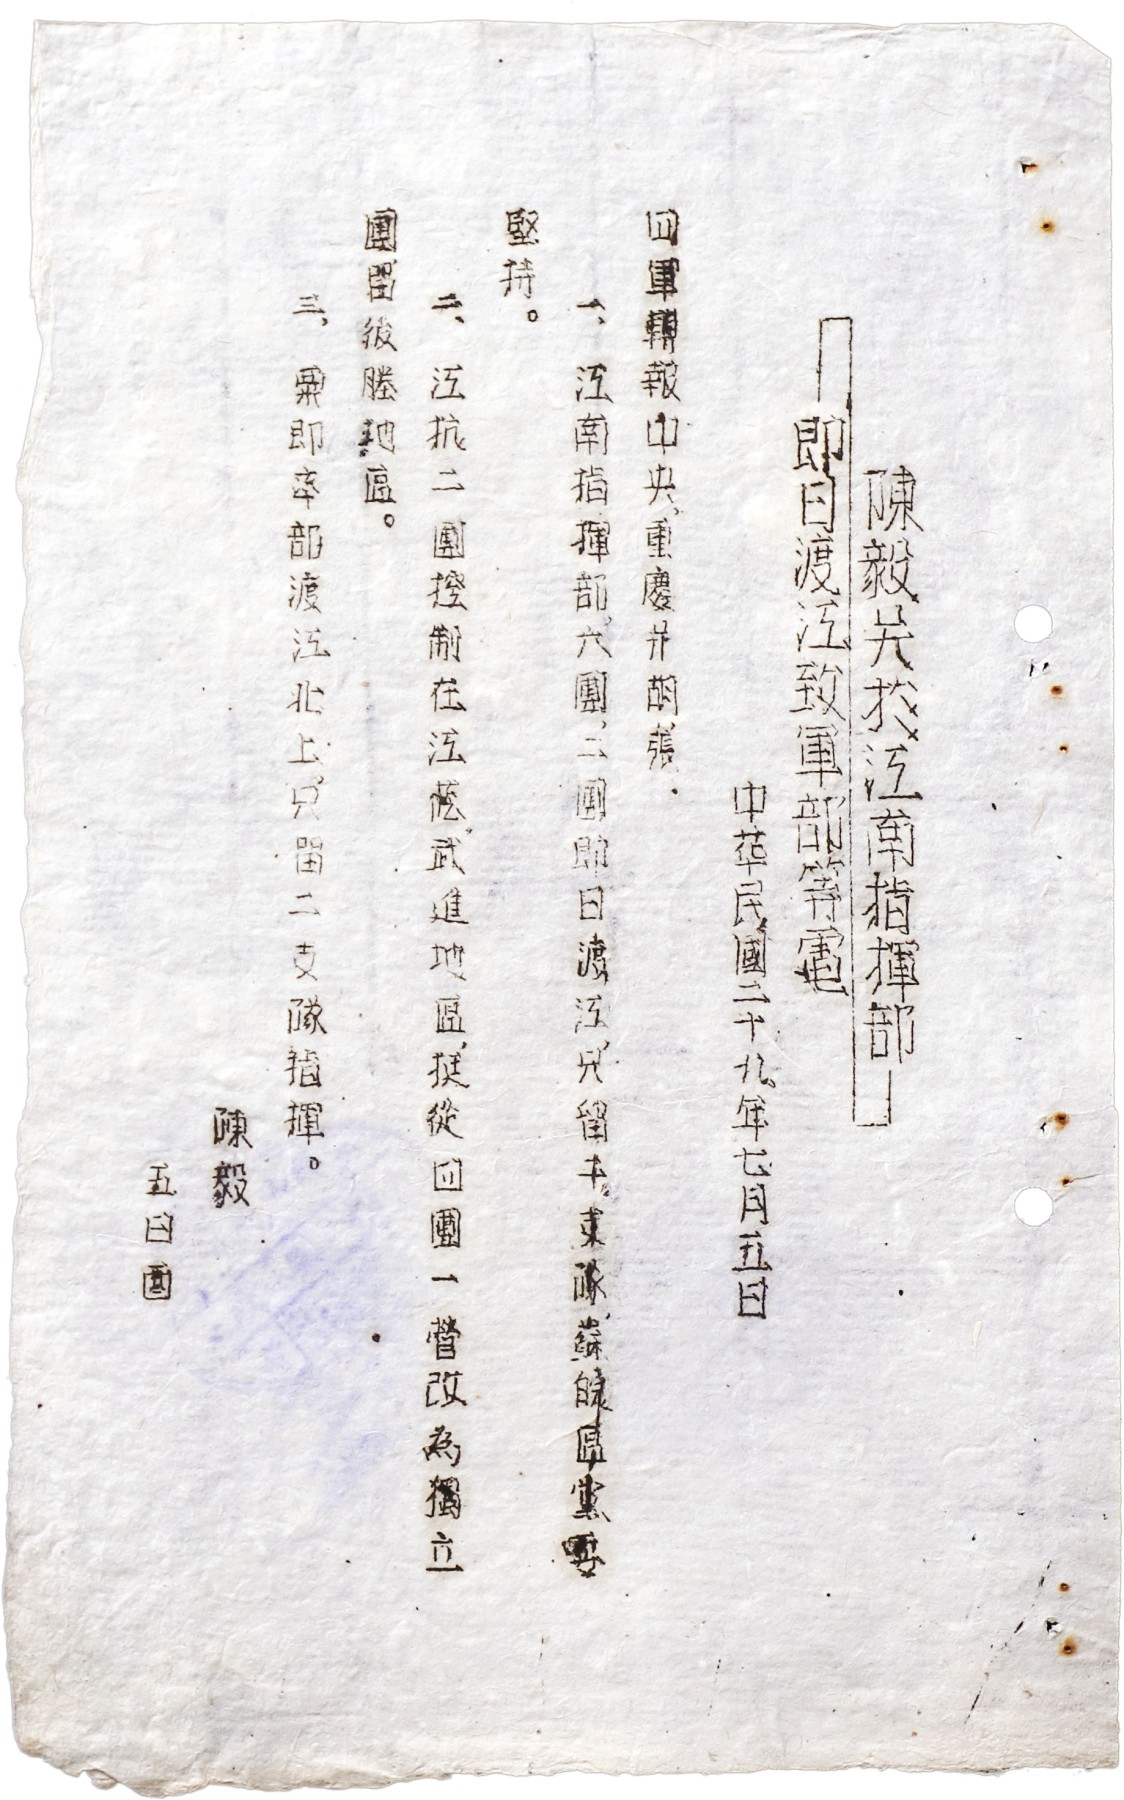 陳毅关扵江南指揮部
即日渡江致軍部等電
中華民國二十九年七月五日
四軍轉報中央，重慶并胡張．
一、江南指揮部，六團，二團即日渡江，只留隊，蘇皖區黨委
堅持。
二、江抗二團控制在江，武進地區，挺從四團一營改為獨立
團留後塍地區。
三、粟即率部渡江北上，只留二支隊指揮。
陳毅
五日酉